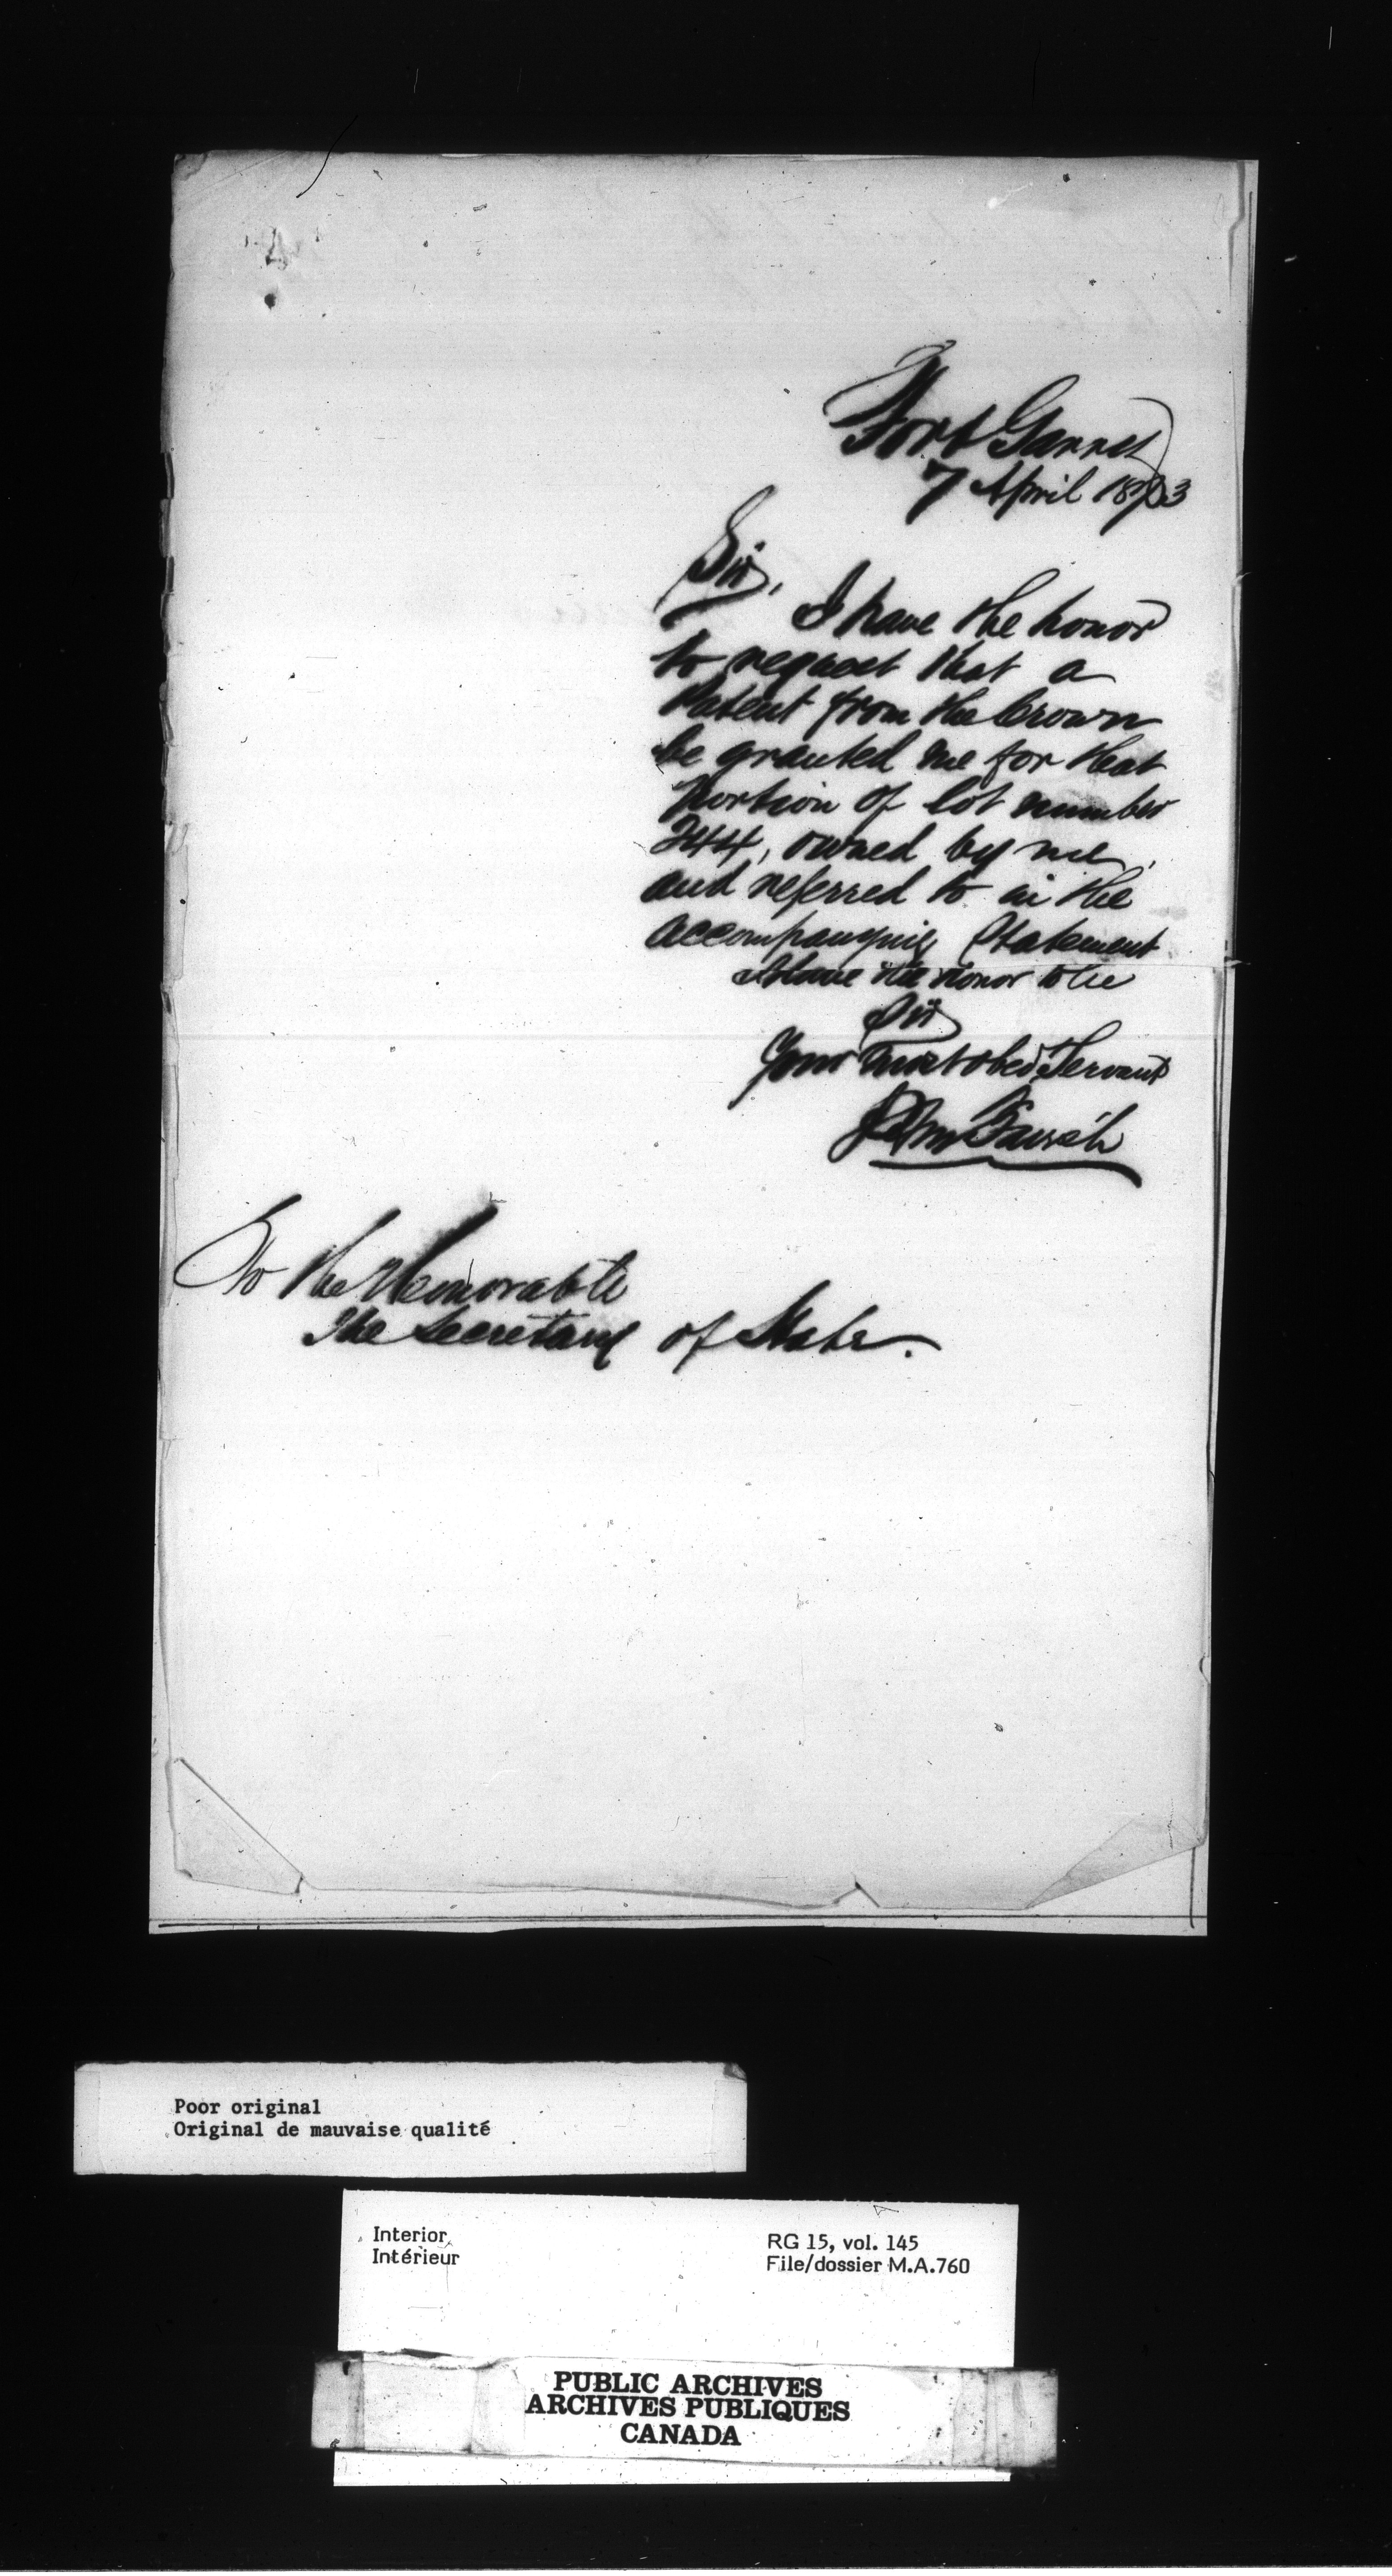 Fort Garry
7 April 1873
Sir,
I have the honor
to request that a
Patent from the Crown
be granted me for that
portion of lot number
244, owned by me,
and referred to in the
accompanying Statement
I have the honor to be
Sir
Your most obed Servant
John
To the Honorable
The Secretary of State.
Poor original
Original de mauvaise qualité
Interior
Intérieur
RG 15, vol. 145
File/dossier M.A.760
PUBLIC ARCHIVES
ARCHIVES PUBLIQUES
CANADA